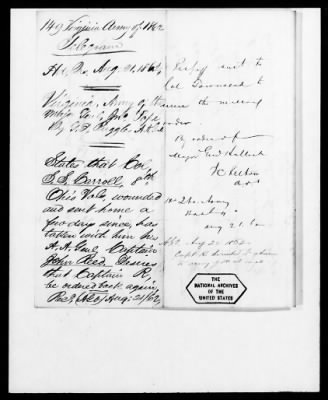 149 Virginia Army of 1862
Telegram
Hd. Qrs. Aug. 21, 1862.
Virginia, Army of
Major Genl. Jno. Pope,
By G. D. Ruggles, A.A.G.
States that Col.
S. S. Carroll, 8th
Ohio Vols, wounded
and sent home a
few days since, has
taken with him his
A. A. Genl, Captain
John Reed. Desires
that Captain R,
be ordered back again.
Recd, (A.G.O.) Aug: 21/62,
Respy sent to
Col Townsend to
issue the necessary
order.
By order of
Major Genl Halleck
J C Kelton
AAG
Hd Qrs Army
Aug 21.
Aug 21 1862.
THE
NATIONAL ARCHIVES
OF THE
UNITED STATES